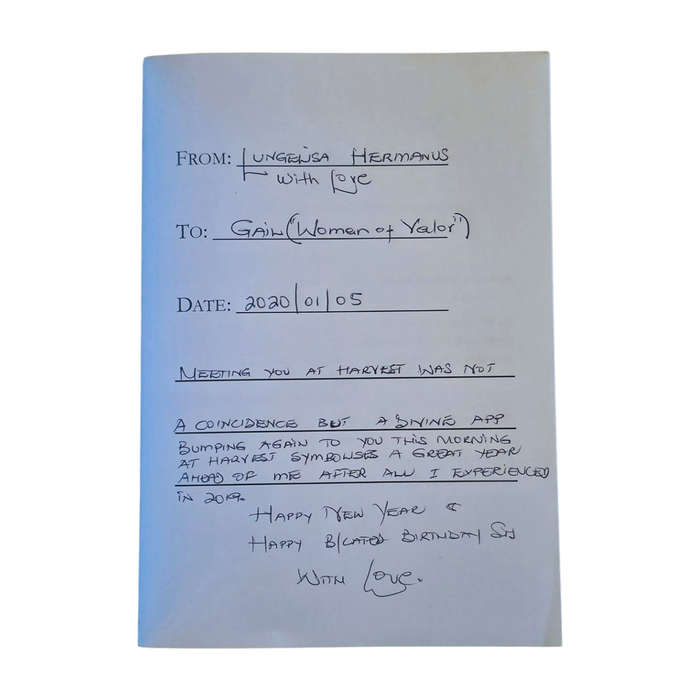 FROM: LUNGELISA HERMANUS
With Love
TO: GAIL ("Woman of Valor")
DATE: 2020/01/05
MEETING YOU AT HARVEST WAS NOT
A COINCIDENCE BUT A DIVINE APP
BUMPING AGAIN TO YOU THIS MORNING
AT HARVEST SYMBOLISES A GREAT YEAR
AHEAD OF ME AFTER ALL I EXPERIENCED
IN 2019.
HAPPY NEW YEAR &
HAPPY B/LATED BIRTHDAY SIS
WITH LOVE.